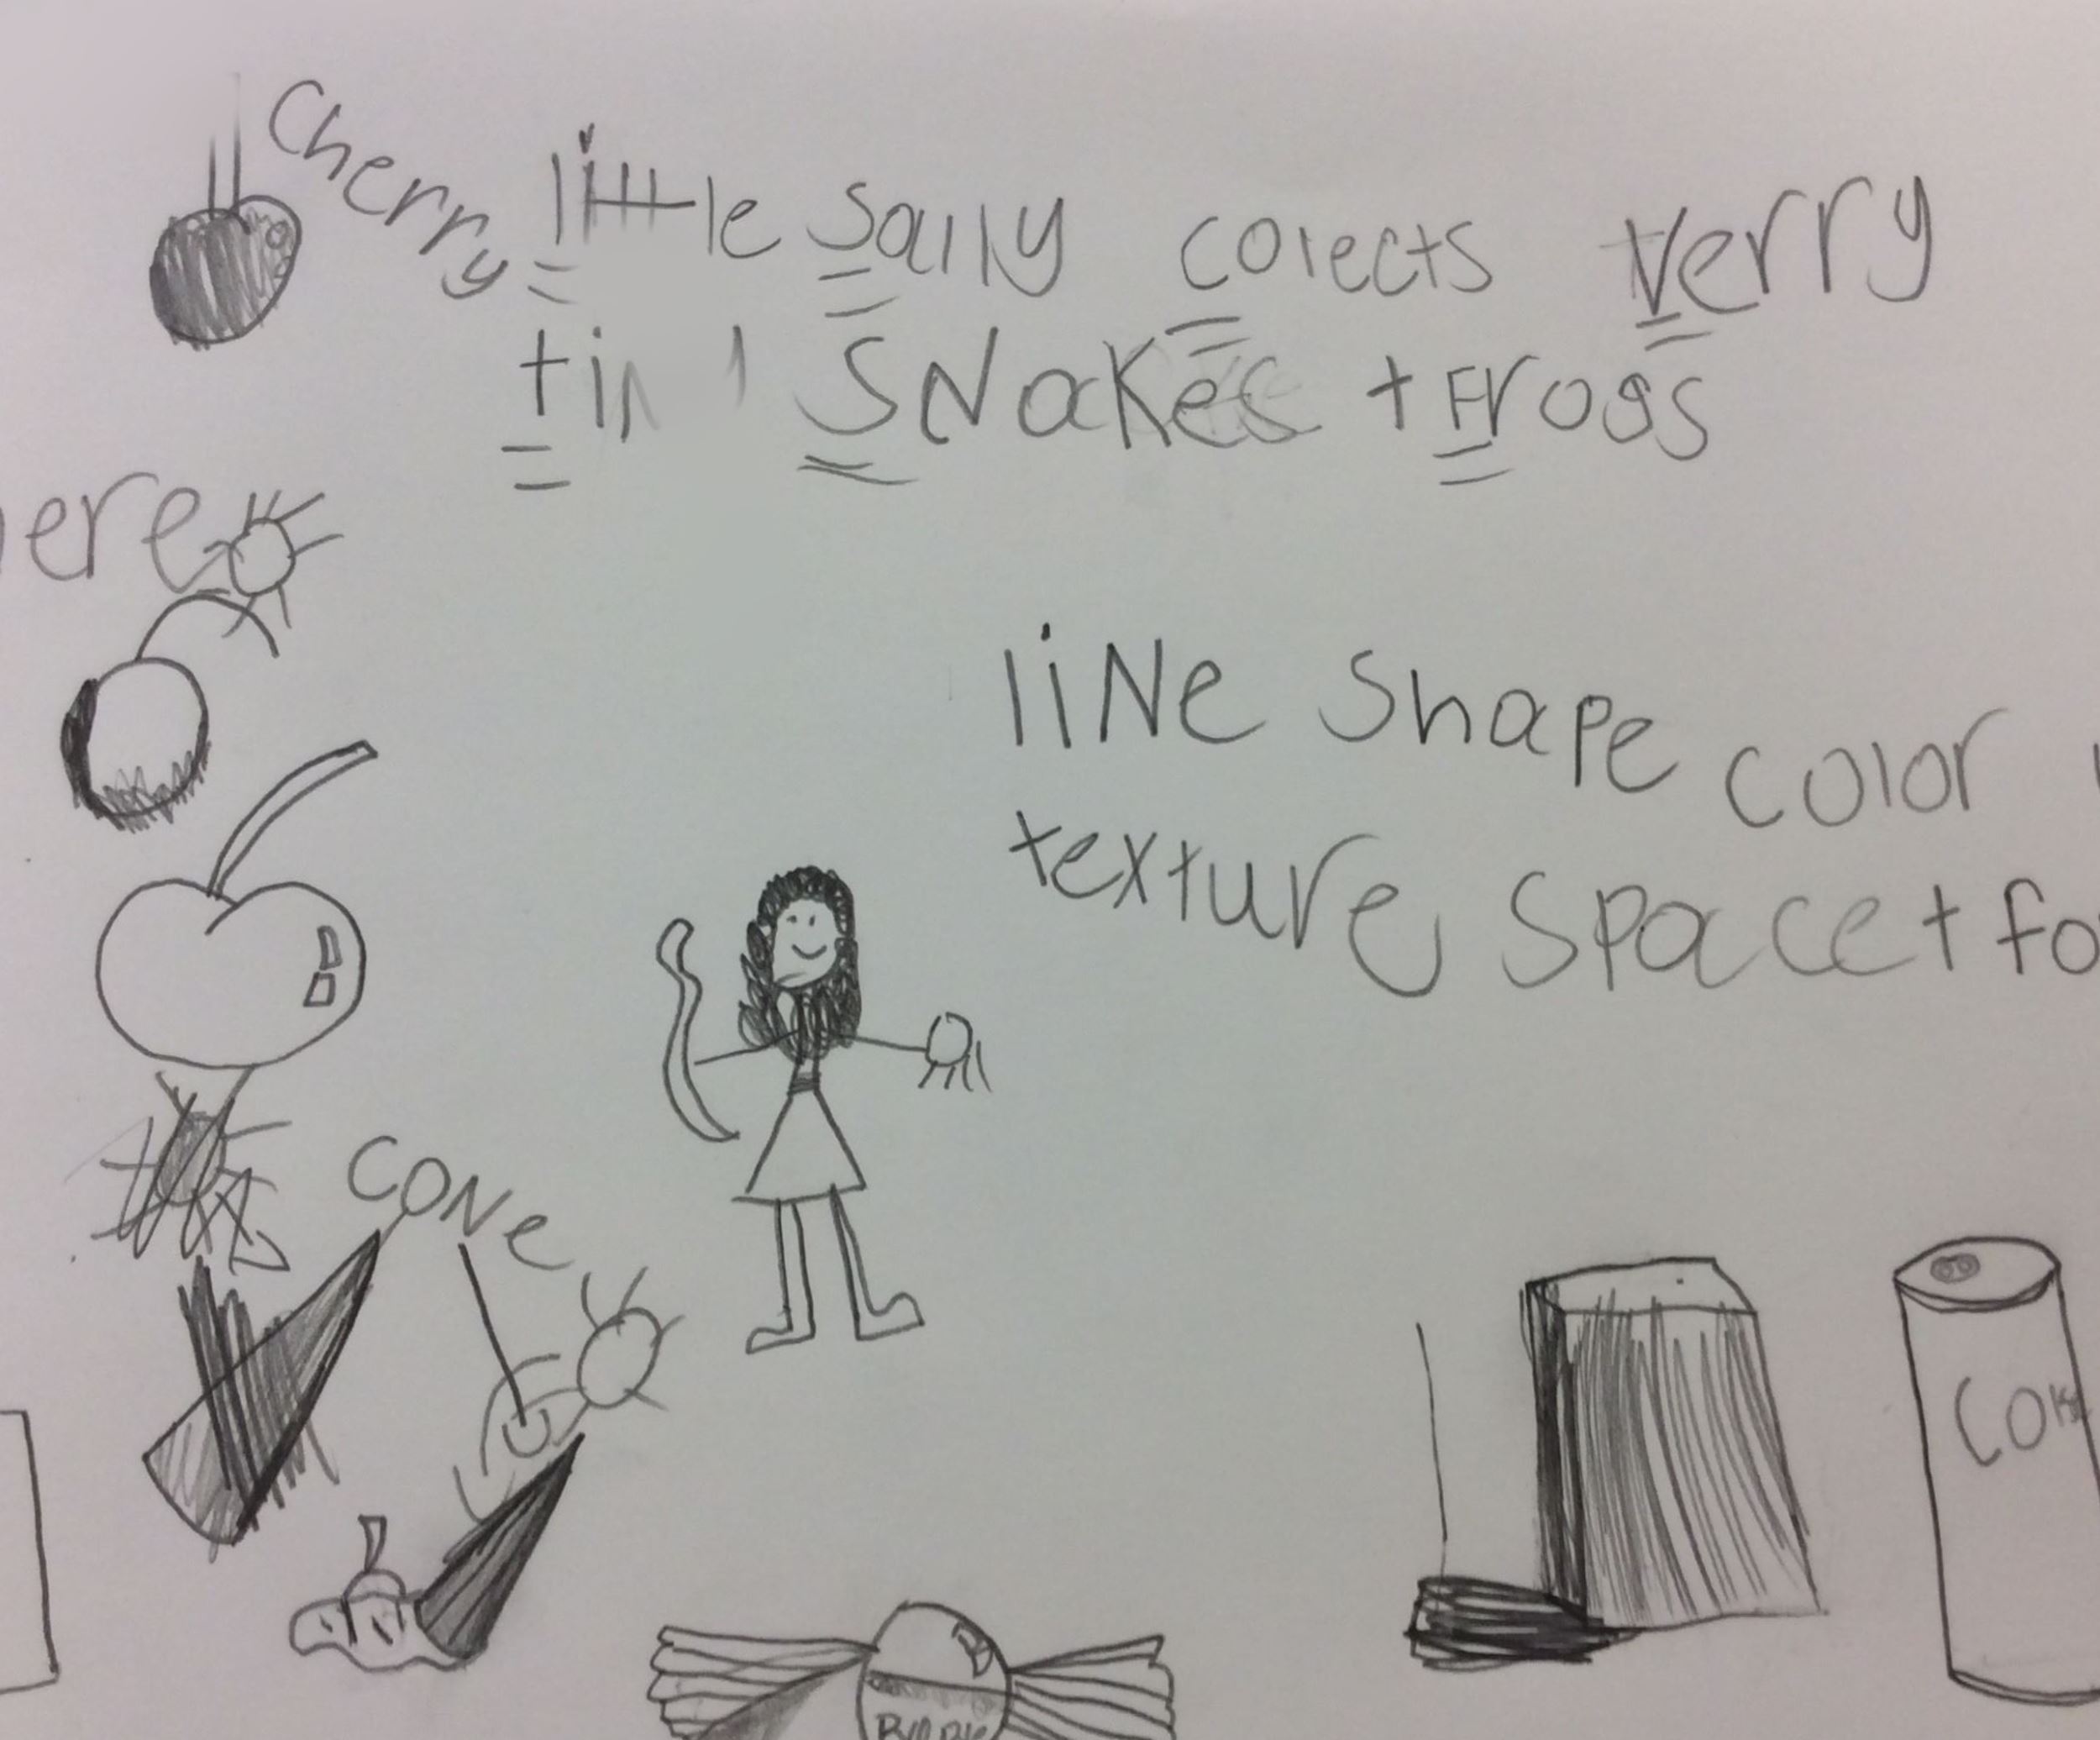 Cherry
little Sally colects verry
Snakes + Frogs
liNe Shape color
texture Space +
CONe